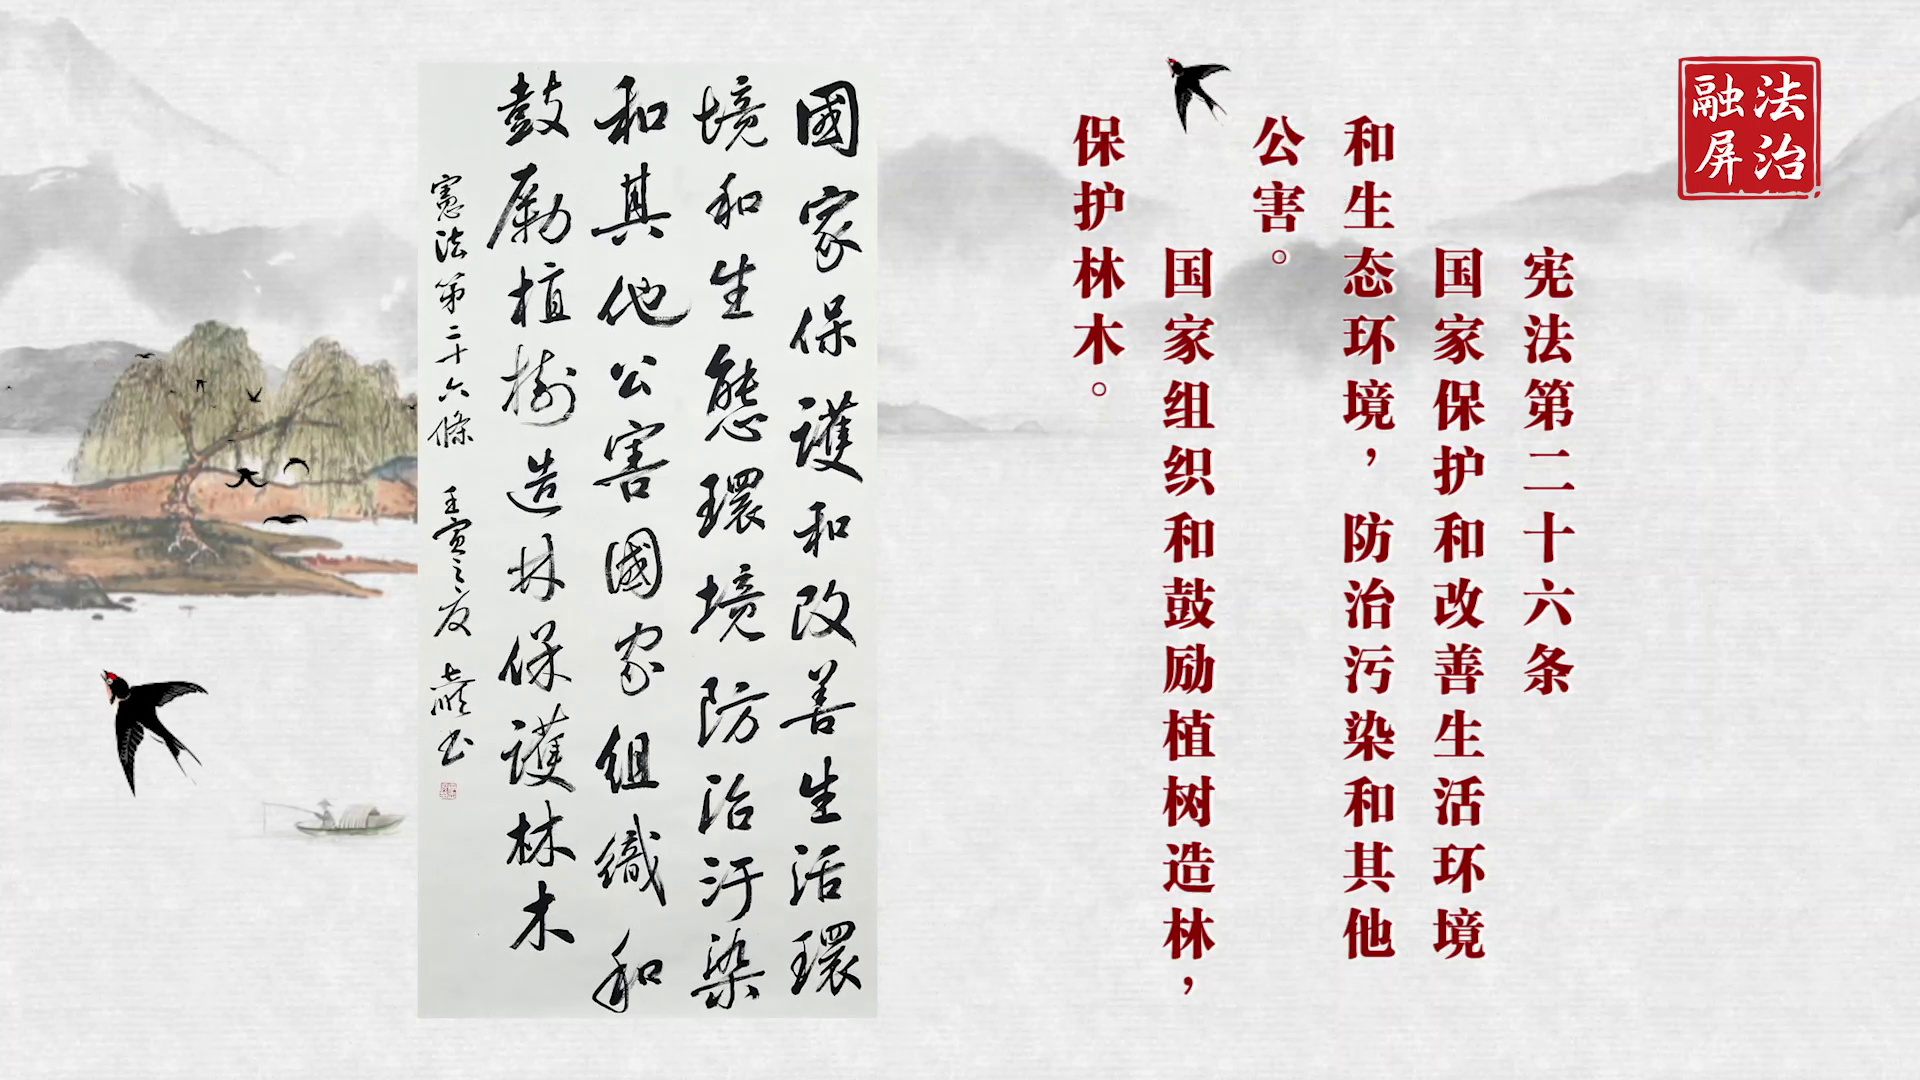 法治
融屏
宪法第二十六条
国家保护和改善生活环境
和生态环境，防治污染和其他
公害。
国家组织和鼓励植树造林，
保护林木。
國家保護和改善生活環
境和生態環境防治汙染
和其他公害國家組織和
鼓勵植樹造林保護林木
憲法第二十六條 壬寅之夏 书